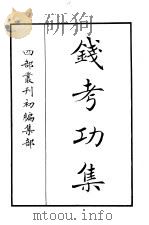 錢考功集
四部叢刊初編集部
mtoou.info